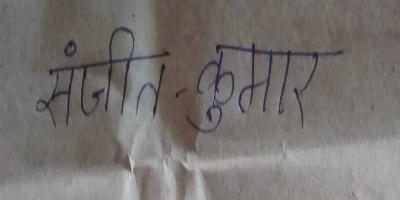 संजीत-कुमार